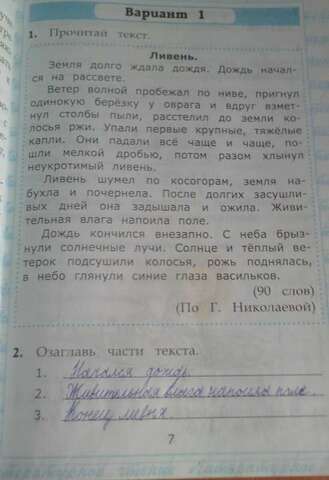 Вариант 1
1. Прочитай текст.
Ливень.
Земля долго ждала дождя. Дождь начал-
ся на рассвете.
Ветер волной пробежал по ниве, пригнул
одинокую берёзку у оврага и вдруг взмет-
нул столбы пыли, расстелил до земли ко-
лосья ржи. Упали первые крупные, тяжёлые
капли. Они падали всё чаще и чаще, по-
шли мелкой дробью, потом разом хлынул
неукротимый ливень.
Ливень шумел по косогорам, земля на-
бухла и почернела. После долгих засушли-
вых дней она задышала и ожила. Живи-
тельная влага напоила поле.
Дождь кончился внезапно. С неба брыз-
нули солнечные лучи. Солнце и тёплый ве-
терок подсушили колосья, рожь поднялась,
в небо глянули синие глаза васильков.
(90 слов)
(По Г. Николаевой)
2. Озаглавь части текста.
1. Начался дождь.
2. Живительная влага напоила поле.
3. Конец ливня.
7